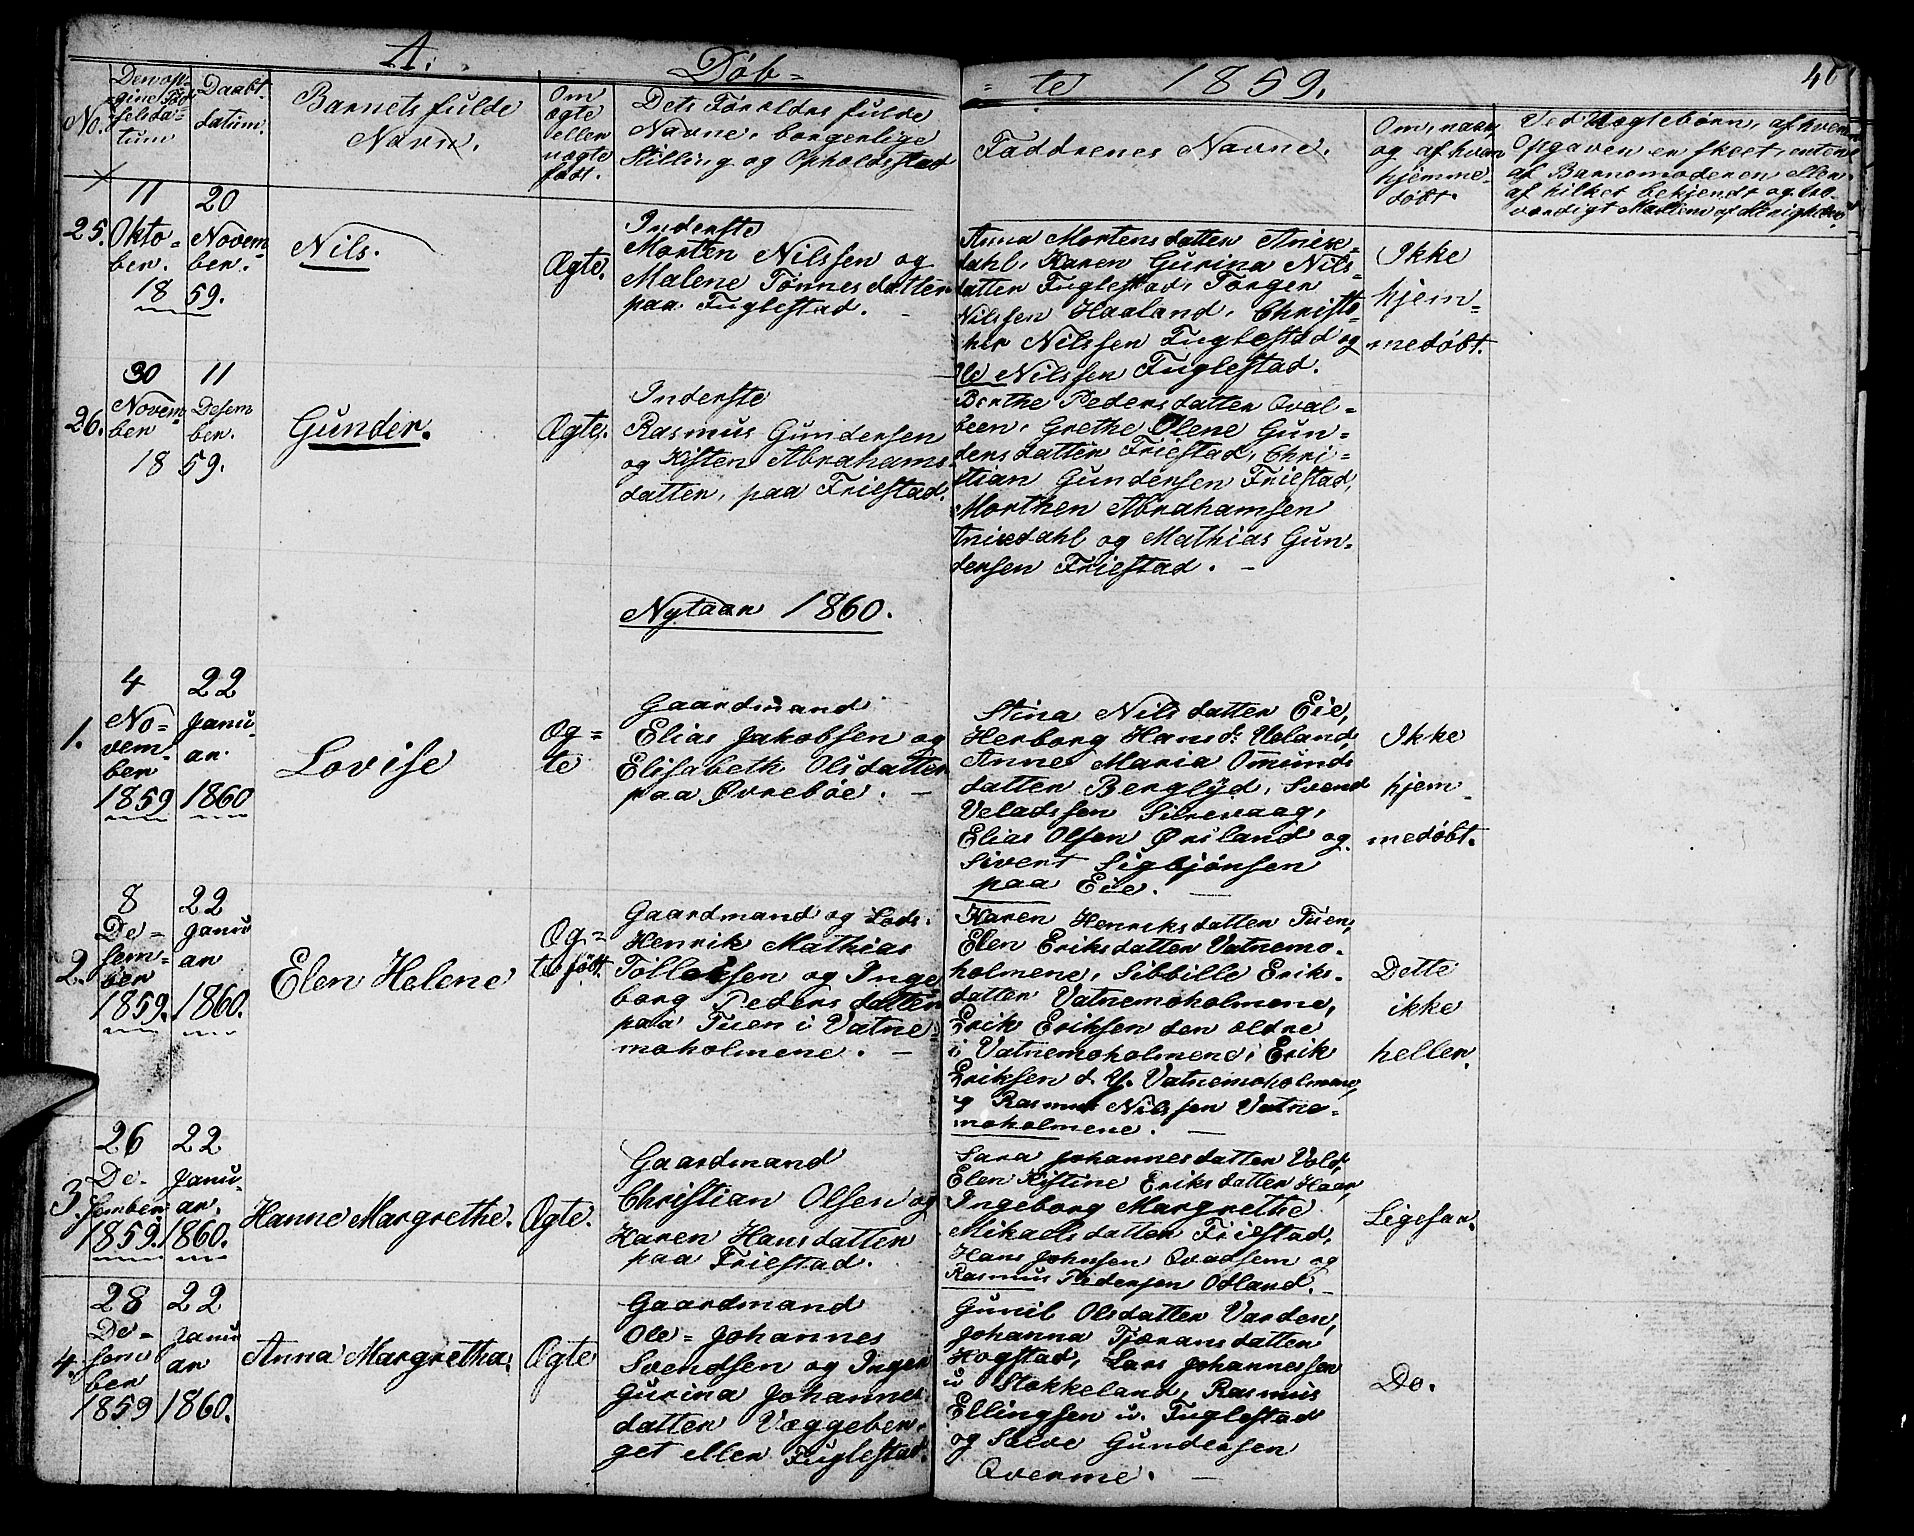 A. Døb-
-te 1859. 40
No.
Den opgivne Fødselsdatum
Daabsdatum.
Barnets fulde Navn.
Om ægte eller uægte født.
Dets Forældres fulde
Navne, borgerlige
Stilling og Opholdssted
Faddrenes Navne.
Om, naar,
og af hvem
hjemme-
døbt.
Ved Uægtebørn, af hvem
Opgaven er skeet, enten
af Barnemoderen eller
af hilket bekjendt og tro-
værdigt Medlem af Menigheden.
25.
11
Okto-
ber.
20
Novem-
ber.
1859.
Nils.
Ægte.
Inderste
Morten Nilssen og
Malene Tønnesdatter
paa Fuglestad. -
Anna Mortensdatter Anix-
dahl, Karen Gurina Nils-
datter Fuglestad, Torger
Nilssen Haaland, Christo-
her Nilssen Fuglestad og
Ole Nilssen Fuglestad.
Ikke
hjem-
medøbt.
26.
30
Novem-
ber
11
Desem
ber.
1859.
Gunder.
Ægte.
Inderste
Rasmus Gundersen
og Kisten Abrahams-
datter, paa Friestad.
Berthe Pedersdatter Qval-
been, Grethe Olene Gun-
dersdatter Friestad, Chri-
stian Gundersen Friestad,
Morthen Abrahamsen
Anixdahl og Mathias Gun-
dersen Friestad. -
Nytaar 1860.
1.
4
No-
vem-
ber
1859
22
Janu-
ar.
1860
Lovise
Æg=
te
Gaardmand
Elias Jakobsen og
Elisabeth Olsdatter
paa Øvrebøe. -
Stina Nilsdatter Eie,
Herborg Hansd: Ueland,
Anne Maria Omunds
datter Berglyd, Svend
Veladssen Sirevaag,
Elias Olsen Ørsland og
Sivert Sigbjönsen
paa Eie. -
Ikke
hjem-
medøbt.
2.
8
De-
sem-
ber
1859.
22
Janu
ar
1860.
Elen Helene
Æg=
te født.
Gaardmand og Lods.
Henrik Mathias
Tollefsen og Inge-
borg Pedersdatter
paa Tuen i Vatne-
moholmene. -
Karen Henriksdatter Tuen,
Elen Eriksdatter Vatnemo-
holmene, Sibbille Eriks-
datter Vatnemoholmene,
Erik Eriksen den ældre
i Vatnemoholmene, Erik
Eriksen d. Y. Vatnemoholmene,
og Rasmus Nilssen Vatne-
moholmene. -
Dette
ikke
heller.
3.
26
De-
sember
1859.
22
Janu-
ar.
1860.
Hanne Margrethe.
Ægte.
Gaardmand
Christian Olsen og
Karen Hansdatter
paa Friestad.
Sara Johannesdatter Vold,
Elen Kistine Eriksdatter Haar,
Ingeborg Margrethe
Mikaelsdatter Friestad,
Hans Johnsen Qvadsem og
Rasmus Pedersen Odland. -
Ligesaa.
4.
28
De-
sem
ber
1859
22
Janu
ar
1860.
Anna Margretha.
Ægte
Gaardmand
Ole-Johannes
Svendsen og Inger
Gurina Johannes-
datter Væggeber-
get eller Fuglestad.
Gunil Olsdatter Varden,
Johanna Tjæransdatter
Hogstad, Lars Johannessen
u Stokkeland, Rasmus
Ellingsen u. Fuglestad
og Salve Gundersen
Qverme. -
Do.